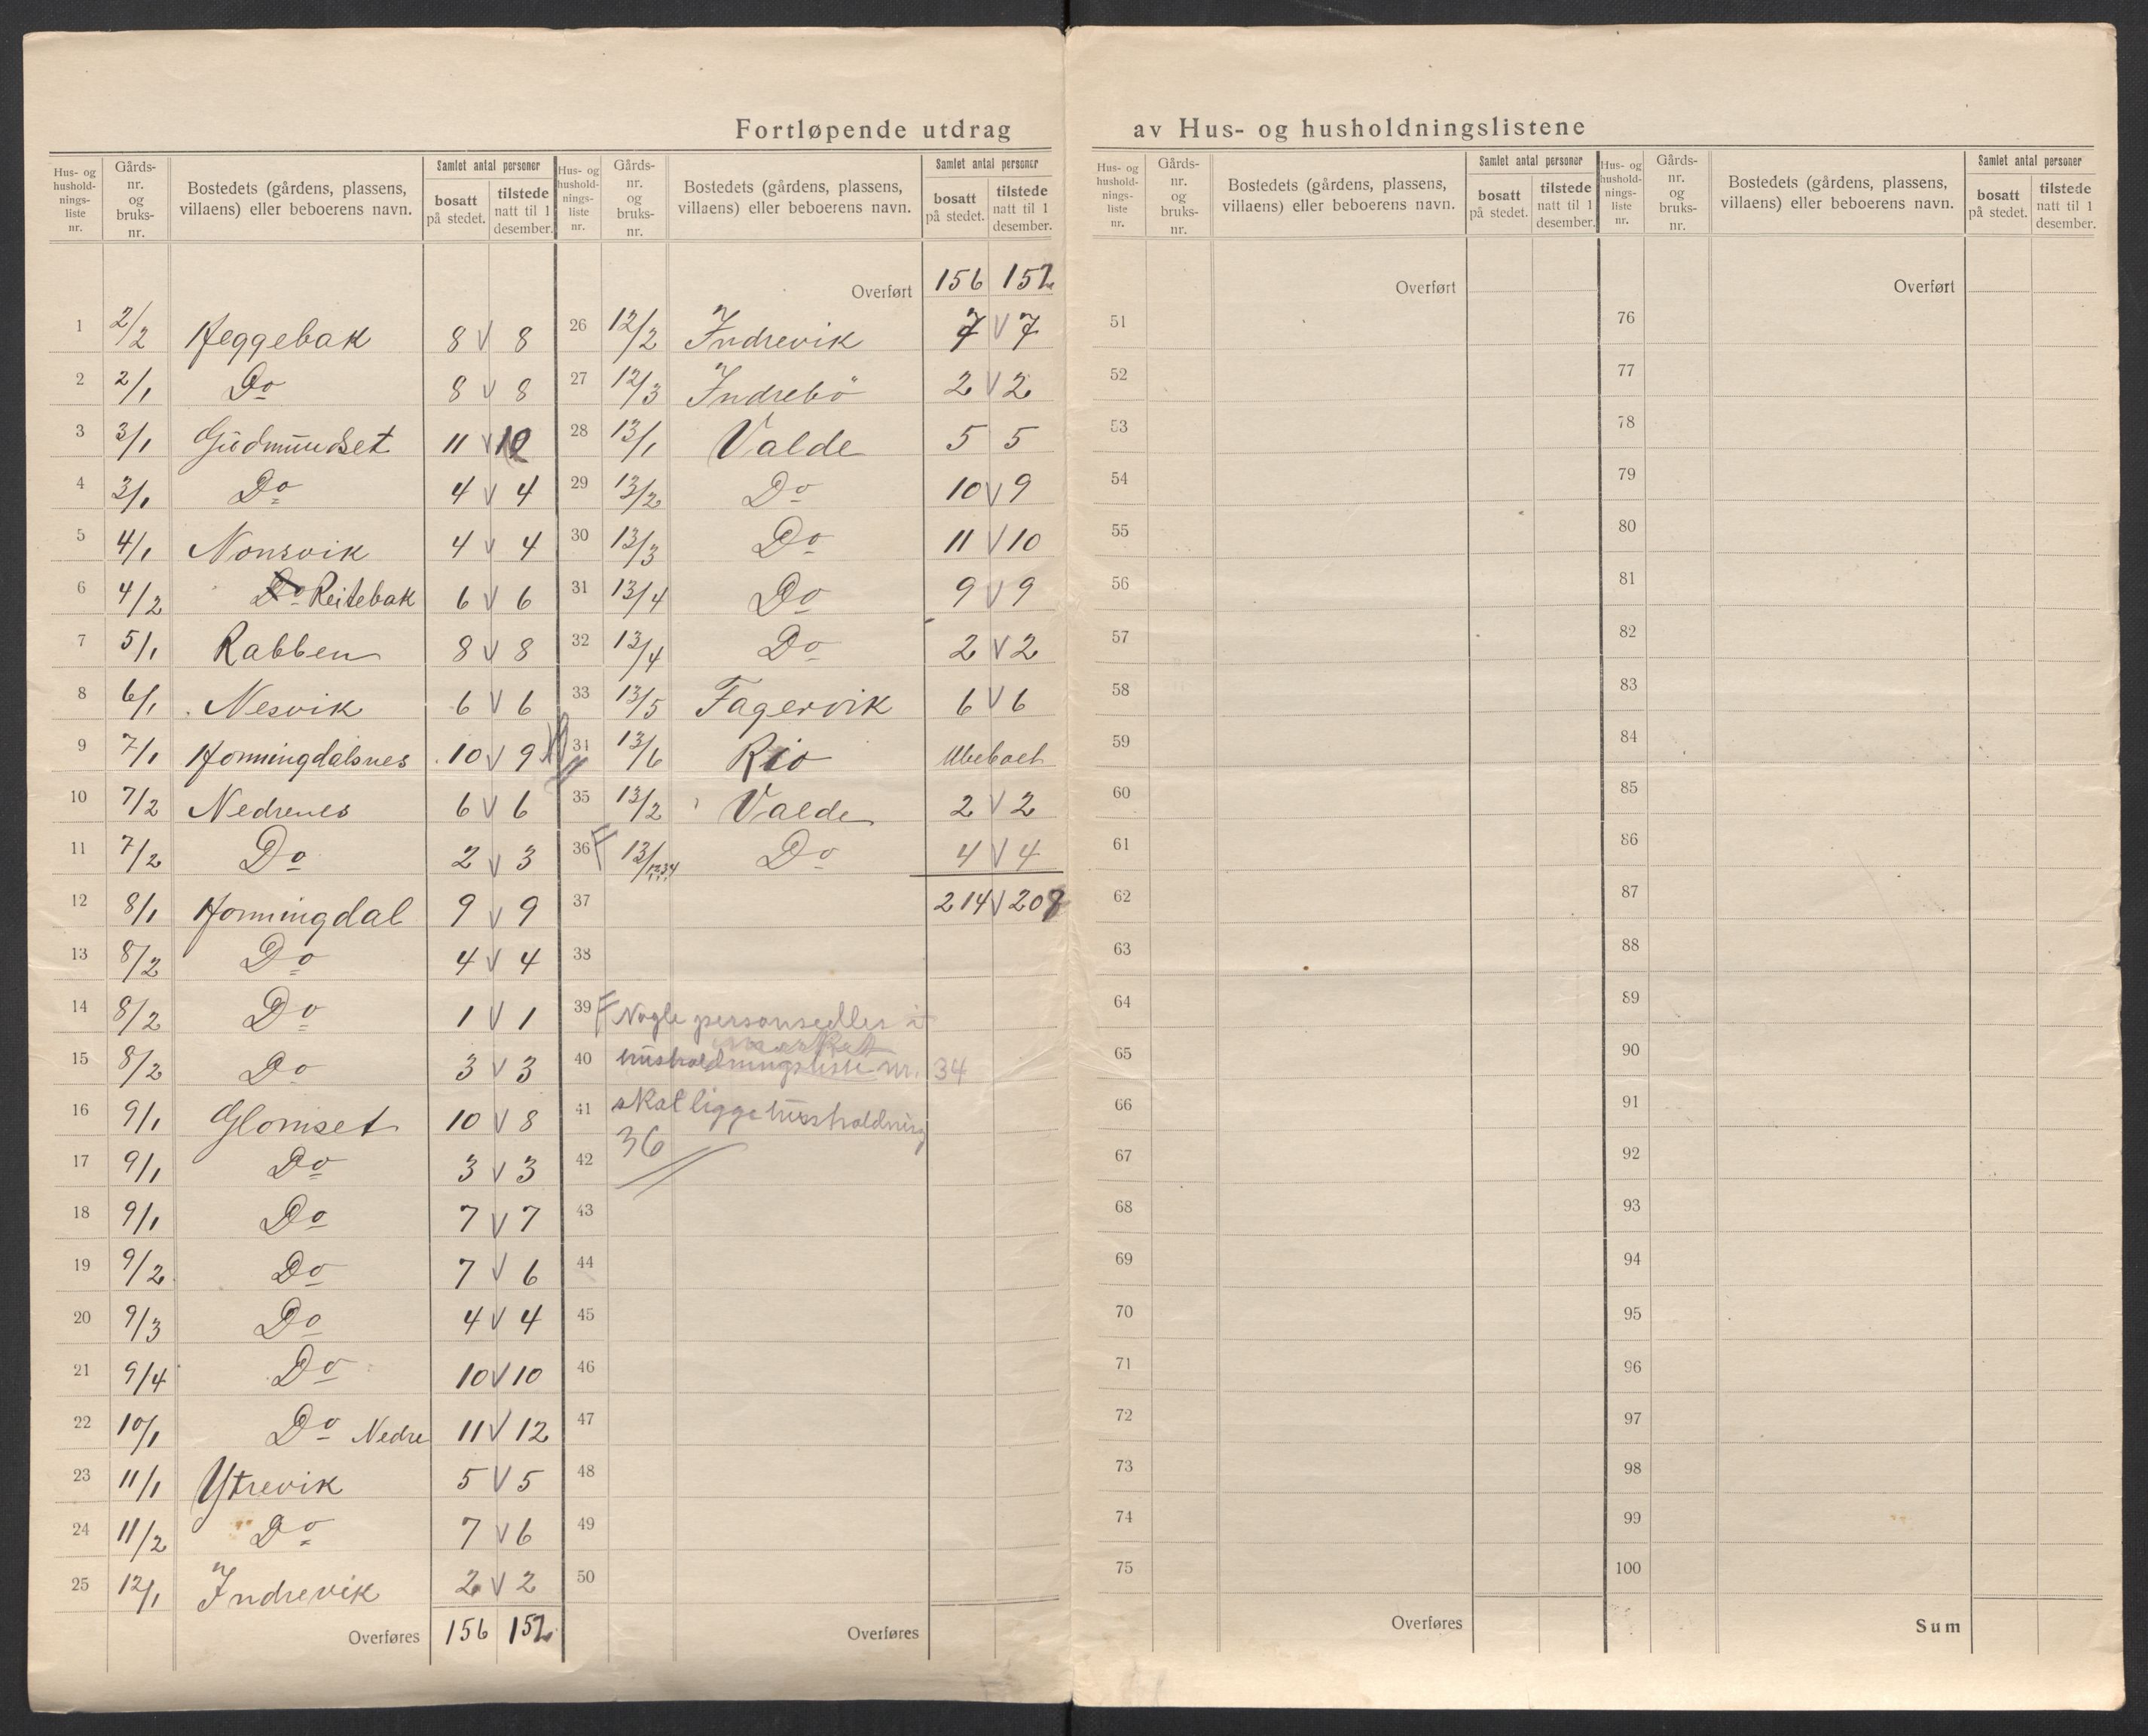 Fortløpende utdrag av Hus- og husholdningslistene
Hus- og hushold-nings-liste nr. Gårds-nr. og bruks-nr. Bostedets (gårdens, plassens, villaens) eller beboerens navn. Samlet antal personer bosatt på stedet. tilstede natt til 1 desember.
1 2/2 Heggebak 8 V 8
2 2/1 Do 8 V 8
3 3/1 Gudmundset 11 V 10
4 3/1 Do 4 V 4
5 4/1 Nonsvik 4 V 4
6 4/2 Do Reitebak 6 V 6
7 5/1 Rabben 8 V 8
8 6/1 Nesvik 6 V 6
9 7/1 Honningdalsnes 10 V 9
10 7/2 Nedrenes 6 V 6
11 7/2 Do 2 V 3
12 8/1 Honningdal 9 V 9
13 8/2 Do 4 V 4
14 8/2 Do 1 V 1
15 8/2 Do 3 V 3
16 9/1 Glomset 10 V 8
17 9/1 Do 3 V 3
18 9/1 Do 7 V 7
19 9/2 Do 7 V 6
20 9/3 Do 4 V 4
21 9/4 Do 10 V 10
22 10/1 Do Nedre 11 V 12
23 11/1 Ytrevik 5 V 5
24 11/2 Do 7 V 6
25 12/1 Indrevik 2 V 2
Overføres 156 152
Hus- og hushold-nings-liste nr. Gårds-nr. og bruks-nr. Bostedets (gårdens, plassens, villaens) eller beboerens navn. Samlet antal personer bosatt på stedet. tilstede natt til 1 desember.
Overført 156 152
26 12/2 Indrevik 7 V 7
27 12/3 Indrebö 2 V 2
28 13/1 Valde 5 5
29 13/2 Do 10 V 9
30 13/3 Do 11 V 10
31 13/4 Do 9 V 9
32 13/4 Do 2 V 2
33 13/5 Fagervik 6 V 6
34 13/6 Rio Ubeboet
35 13/2 Valde 2 V 2
36 13/1,2,3,4 Do 4 V 4
37 214 V 208
38
39 Nogle personsedler
40 merket husholdningsliste nr. 34
41 skal ligge husholdning
42 36
43
44
45
46
47
48
49
50
Overføres
Hus- og hushold-nings-liste nr. Gårds-nr. og bruks-nr. Bostedets (gårdens, plassens, villaens) eller beboerens navn. Samlet antal personer bosatt på stedet. tilstede natt til 1 desember.
Overført
51
52
53
54
55
56
57
58
59
60
61
62
63
64
65
66
67
68
69
70
71
72
73
74
75
Overføres
Hus- og hushold-nings-liste nr. Gårds-nr. og bruks-nr. Bostedets (gårdens, plassens, villaens) eller beboerens navn. Samlet antal personer bosatt på stedet. tilstede natt til 1 desember.
Overført
76
77
78
79
80
81
82
83
84
85
86
87
88
89
90
91
92
93
94
95
96
97
98
99
100
Sum